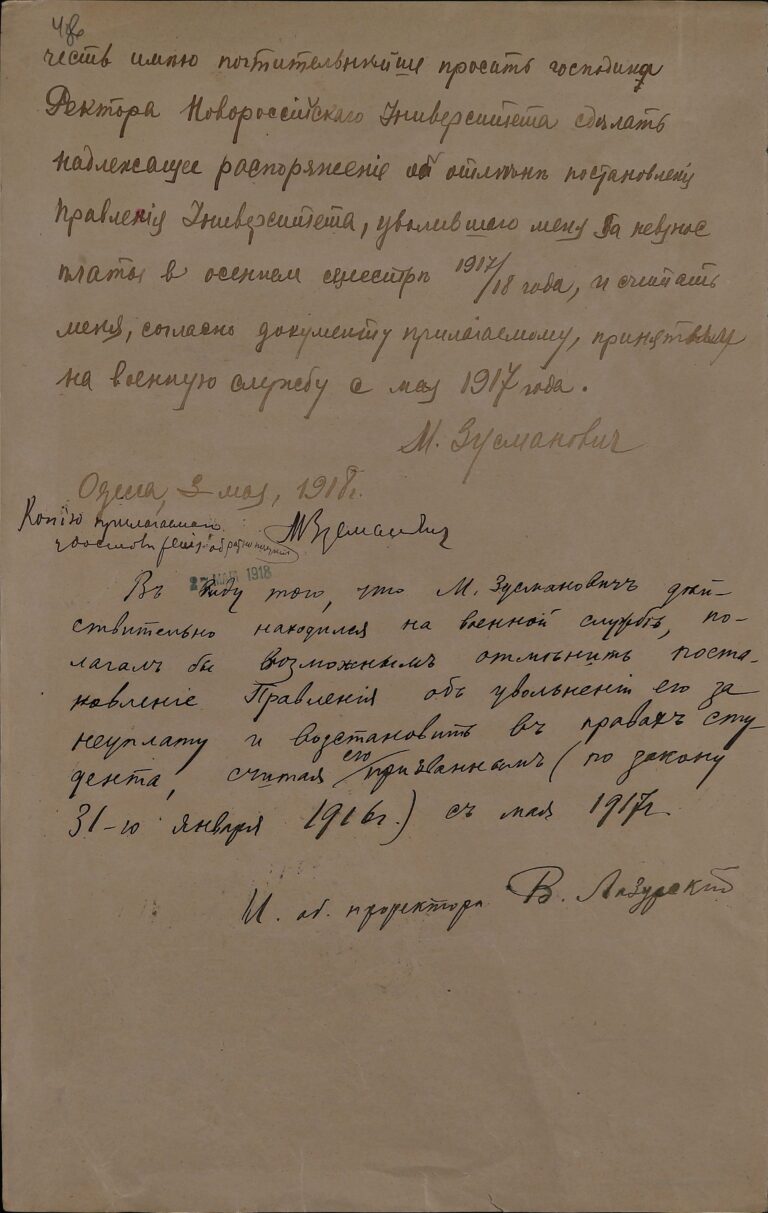 честь имѣю почтительнѣйше просить господина
Ректора Новороссійскаго Университета сдѣлать
надлежащее распоряженіе об отмѣнѣ постановленія
Правленія Университета, уволившаго меня за невзнос
платы в осеннем семестрѣ 1917/18 года, и считать
меня, согласно документу прилагаемому, принятым
на военную службу с мая 1917 года.
М. Зусманович
Одесса, 3 мая, 1918г.
Копію прилагаемого
удостовѣренія обратно получил
МЗусманович
27 МАЙ 1918
Въ виду того, что М. Зусмановичъ дѣй-
ствительно находился на военной службѣ, по-
лагалъ бы возможнымъ отмѣнить поста-
новленіе Правленія объ увольненіи его за
неуплату и возстановить въ правахъ сту-
дента, считая его призваннымъ (по закону
31-го января 1916г.) съ мая 1917г.
И. об. проректора В. Лазурскій